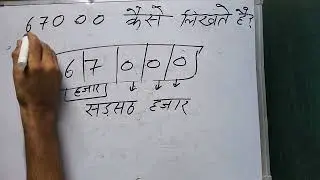 67000 कैसे लिखते है?
6 7 0 0 0
हजार
सड़सठ हजार